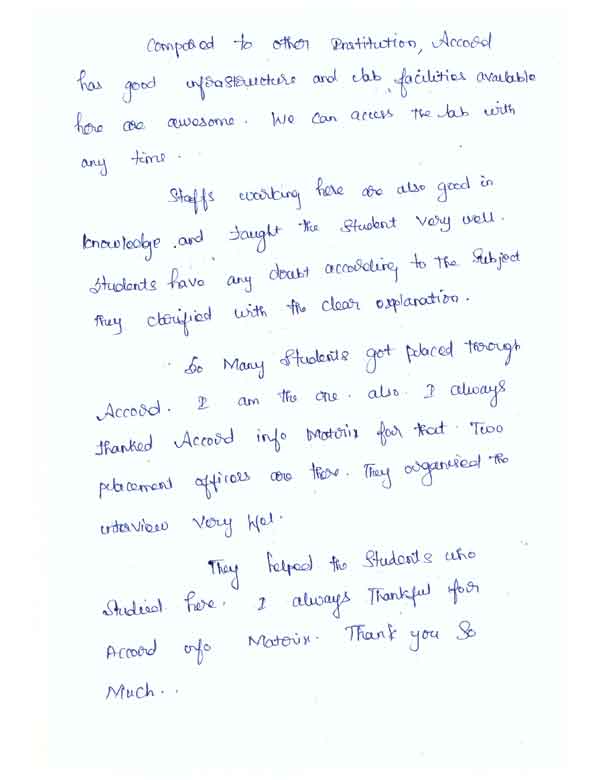 Compared to other Institution, Accord
has good infrastructure and lab facilities available
here are awesome. We can access the lab with
any time.
Staffs working here are also good in
knowledge and taught the student very well.
Students have any doubt according to the subject
they clarified with the clear explanation.
So Many Students got placed through
Accord. I am the one also. I always
thanked Accord info Matrix for that. Two
placement officers are there. They organised the
interview very well.
They helped the Students who
studied here. I always Thankful for
Accord info Matrix. Thank you So
Much..